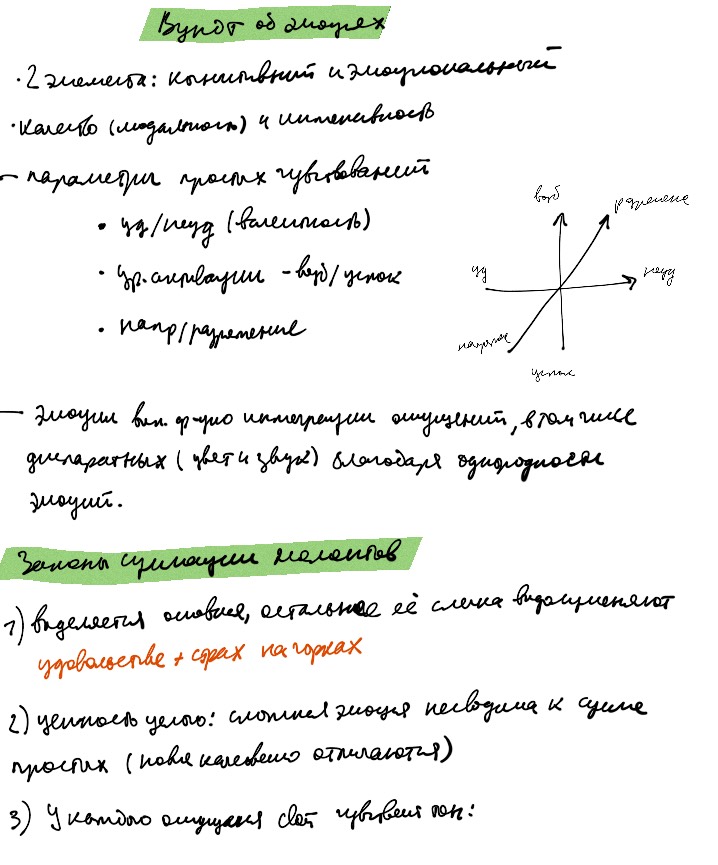 Вундт об эмоциях
· 2 элемента: когнитивный и эмоциональный
· качество (модальность) и интенсивность
– параметры простых чувствований
• уд/неуд (валентность)
• ур. активации – возб/успок
• напр/разрешение
возб
разрешение
уд
неуд
напряж
успок
– Эмоции вып. ф-цию интеграции ощущений, в том числе
диспаратных (цвет и звук) благодаря однородности
эмоций.
Законы суммации
1) выделяется основная, остальные её слегка видоизменяют
удовольствие + страх на горках
2) ценность целого: сложная эмоция несводима к сумме
простых (новая качественно отличаются)
3) У каждого ощущения свой чувствен тон: